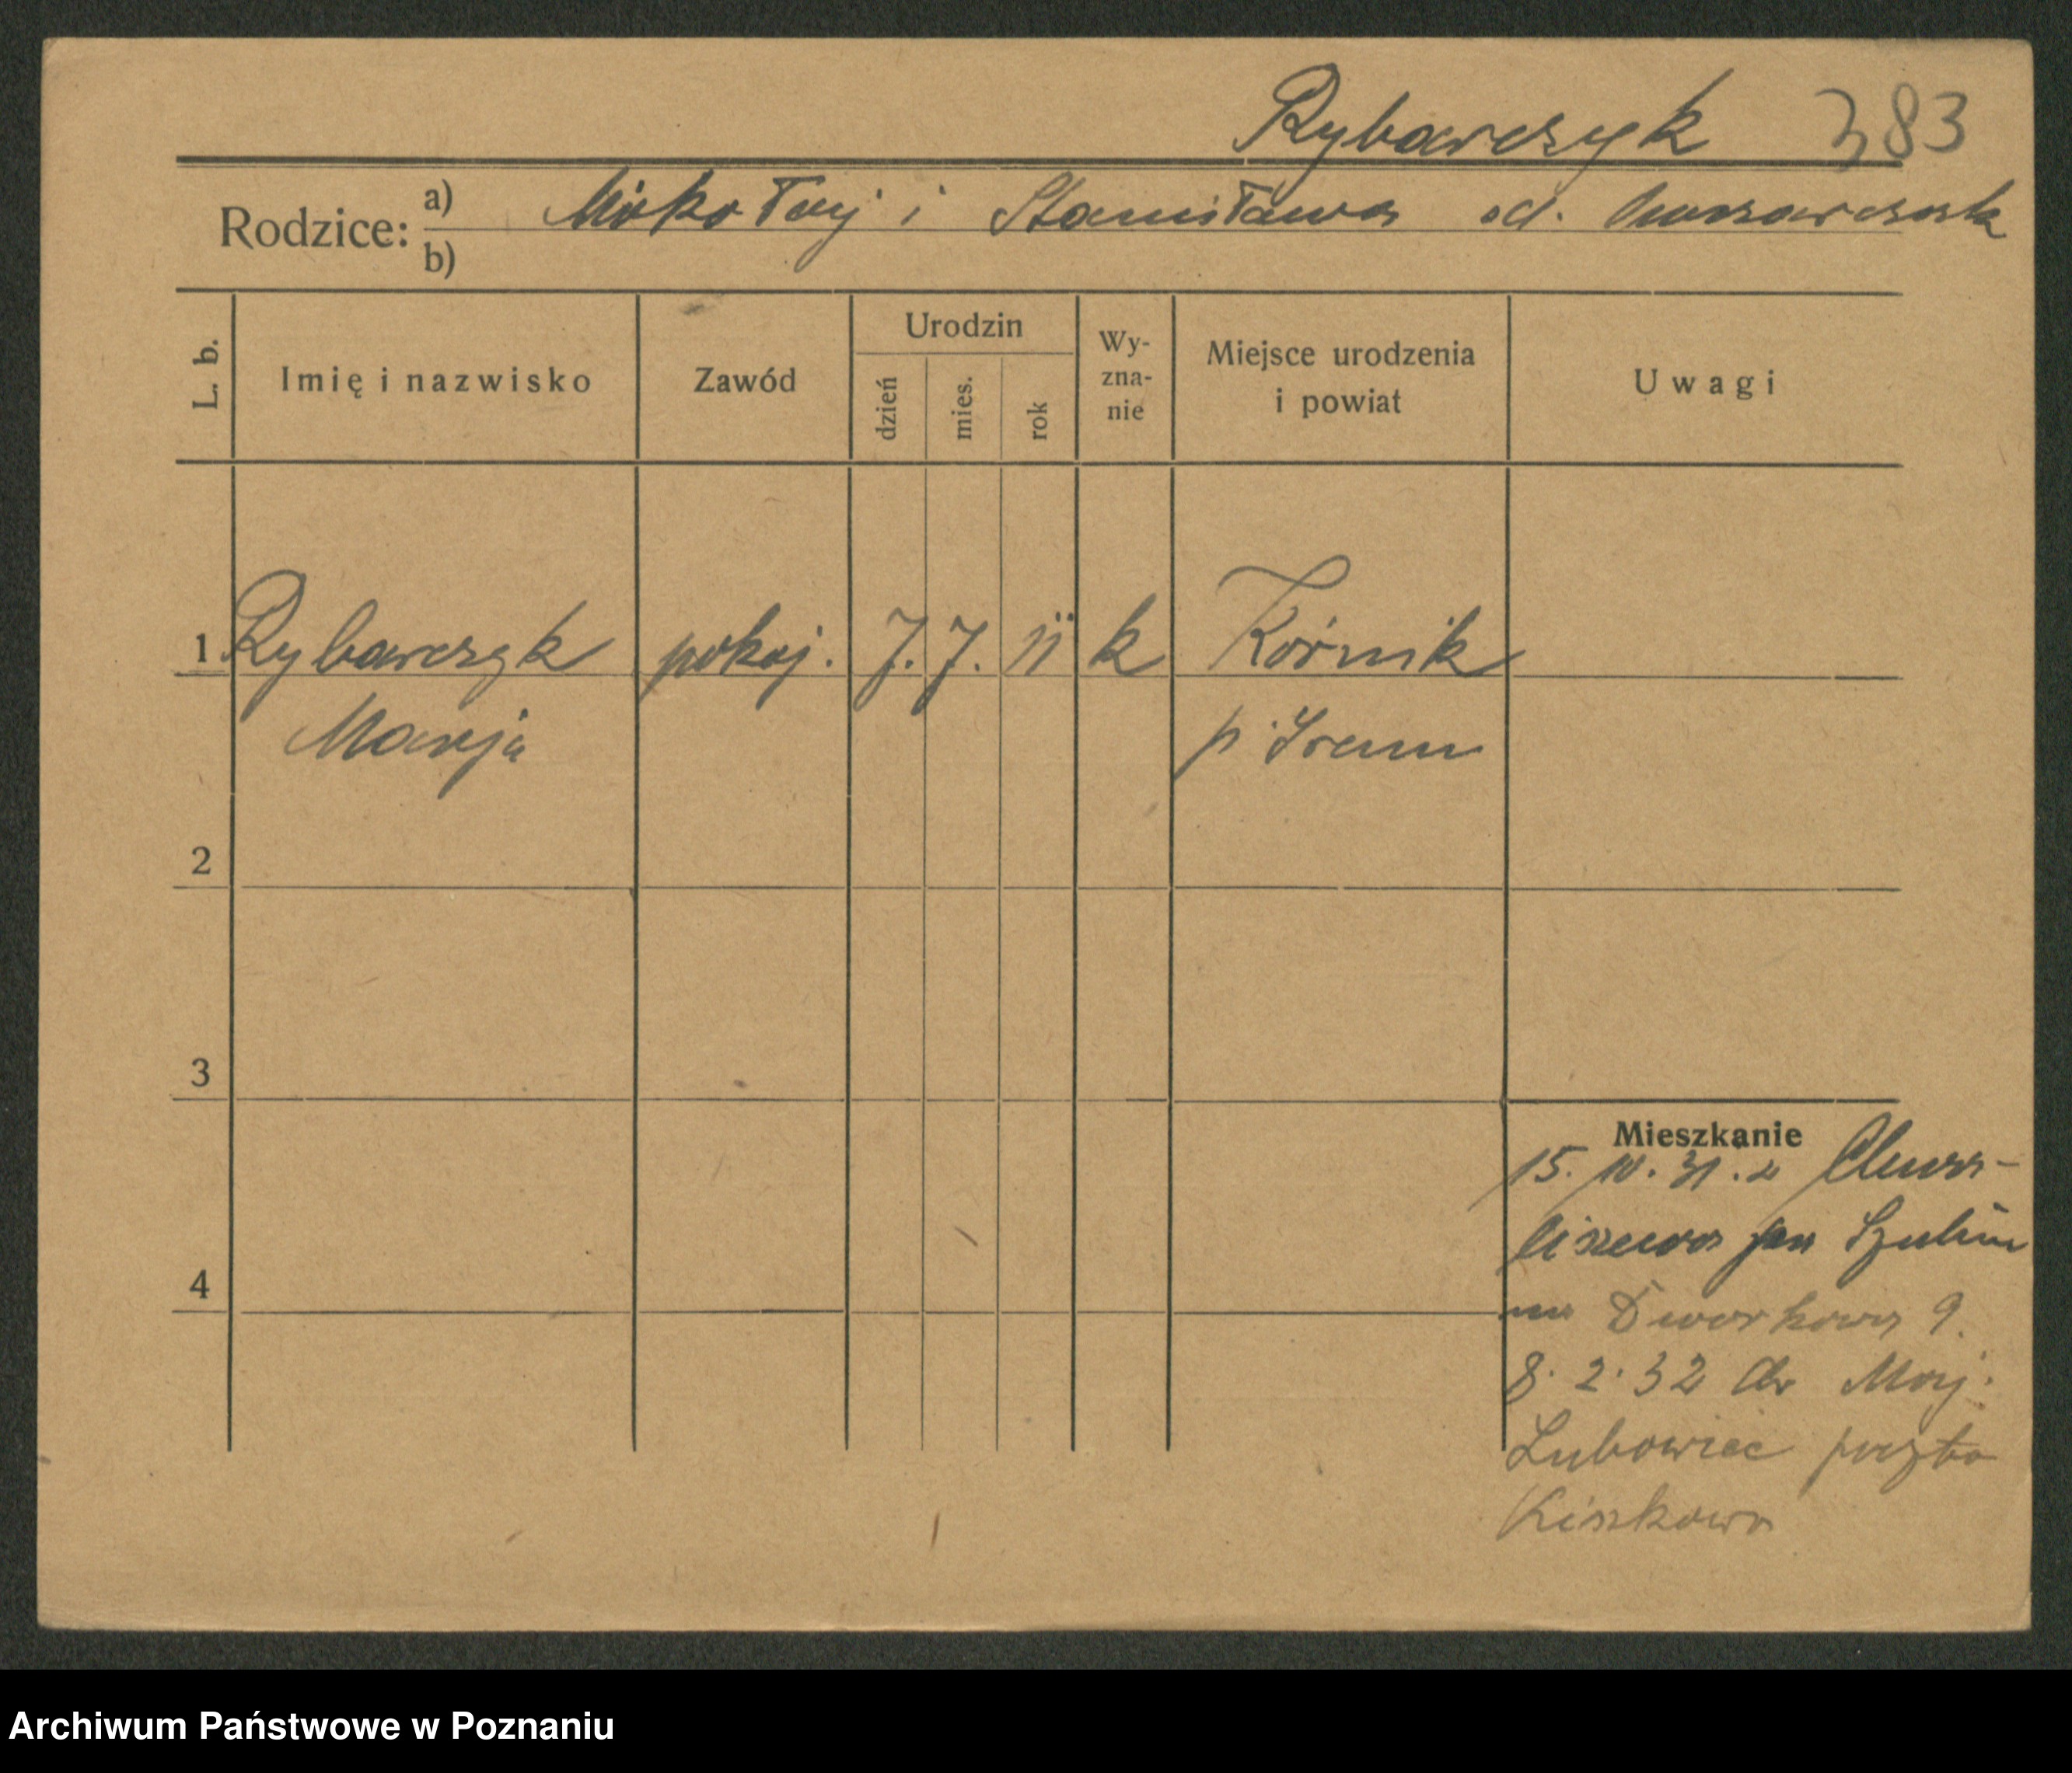 Rybarczyk 383
Rodzice: a) Mikołaj i Stanisława od.
b)
L. b.
Imię i nazwisko
Zawód
Urodzin
dzień
mies.
rok
Wy-
zna-
nie
Miejsce urodzenia
i powiat
Uwagi
1 Rybarczyk pokoj. 7. 7. 11 k Kórnik
Marja p. Śrem
2
3
4
Mieszkanie
15. 10. 31. z
pow Szubin
na Dworkowa 9.
8. 2. 32 do Maj.
Lubowiec poczta
Kiszkowo
Archiwum Państwowe w Poznaniu